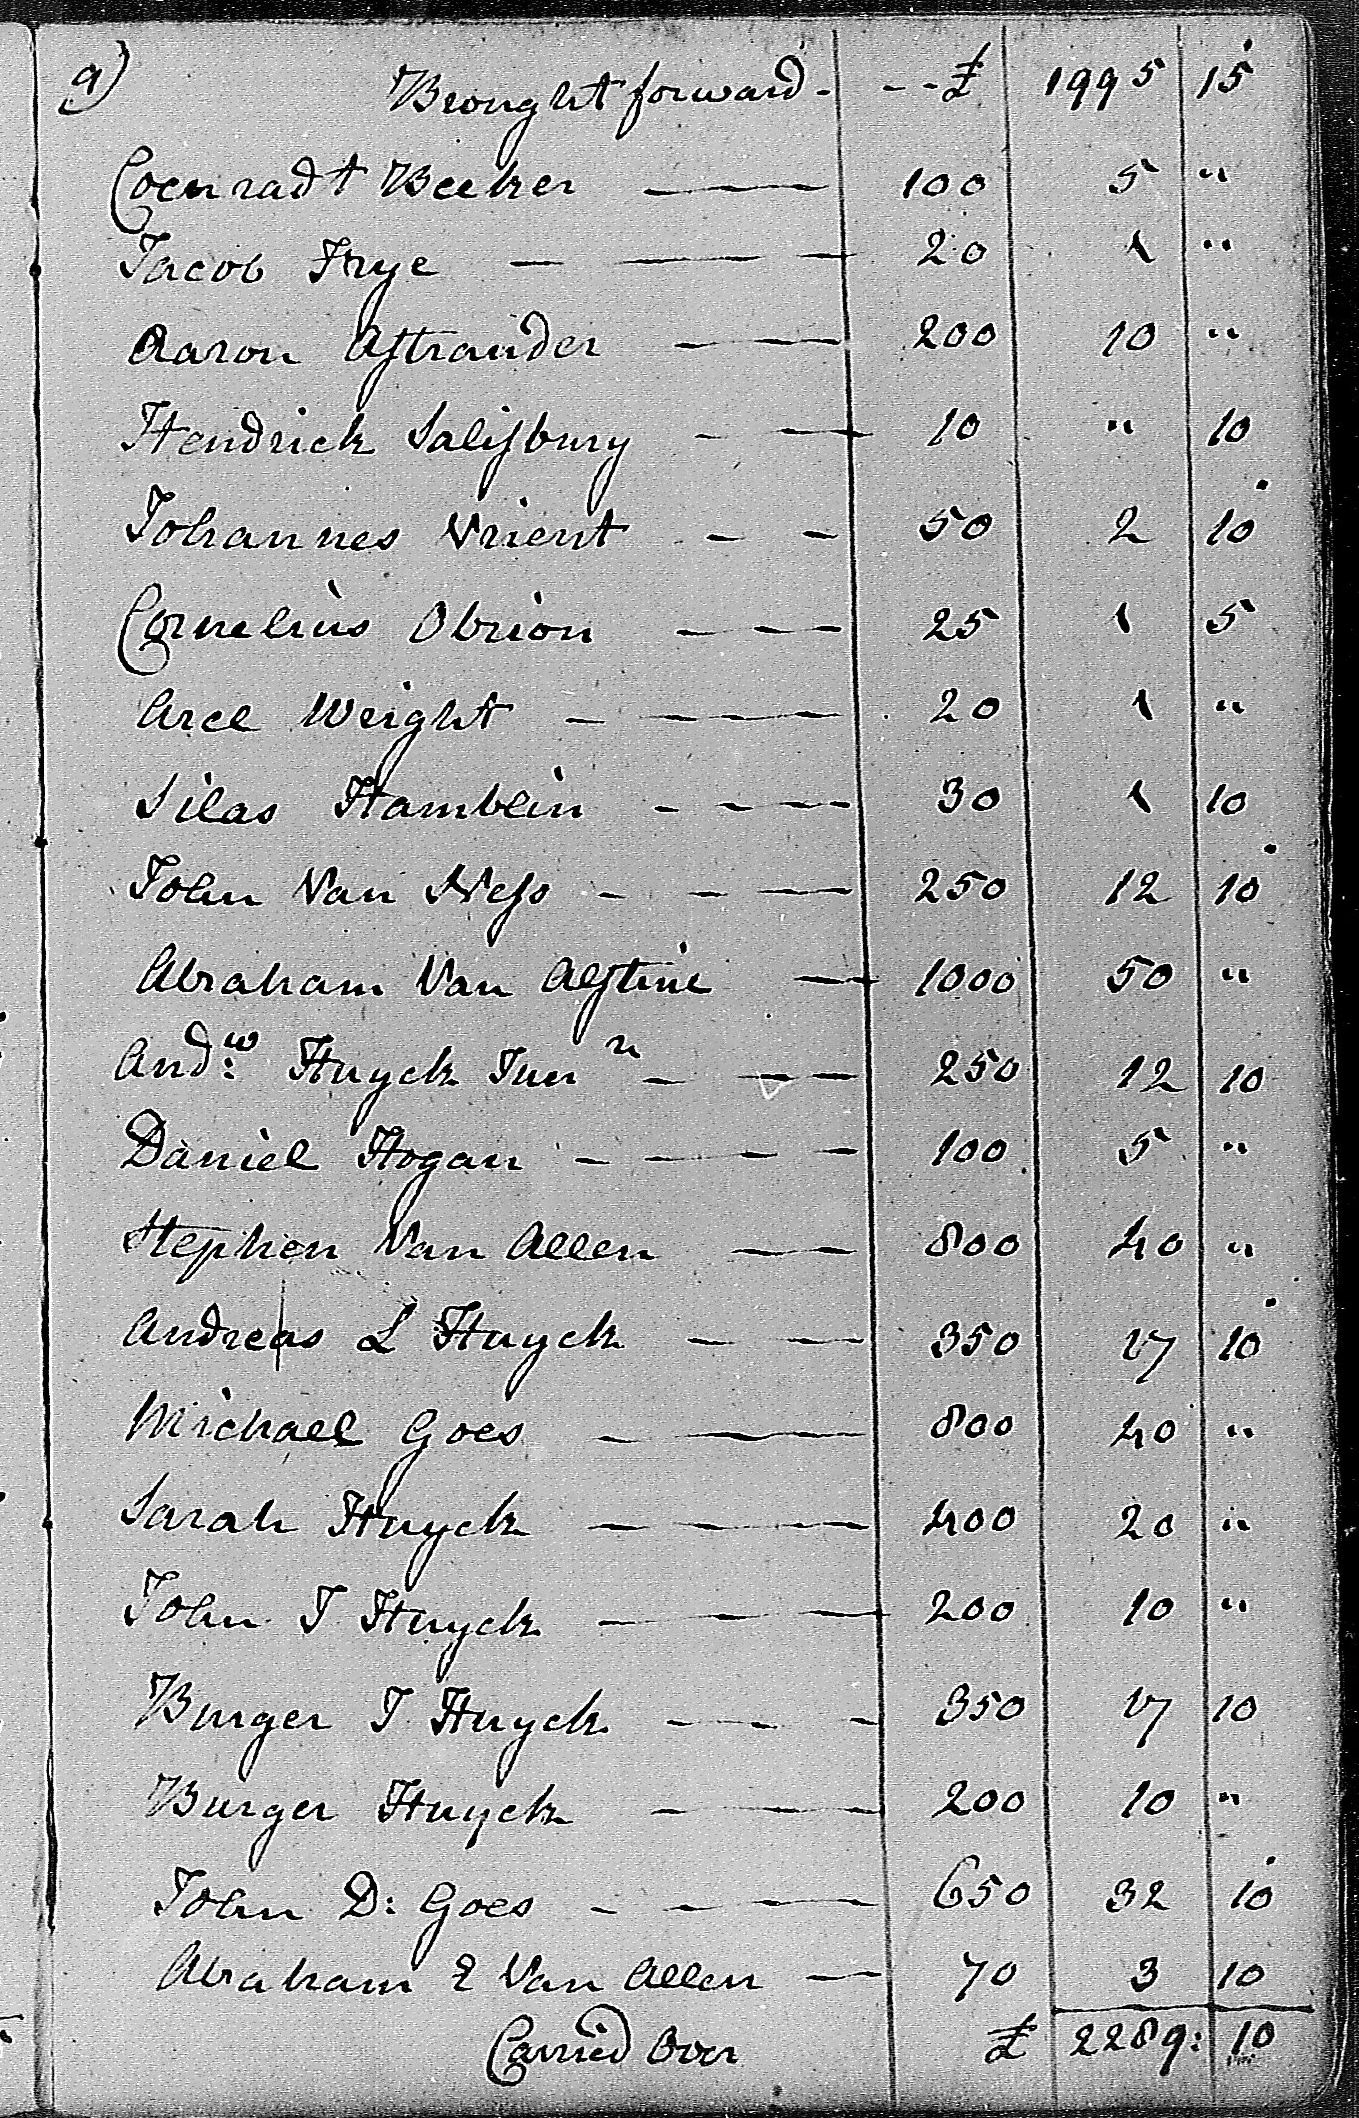 9) Brought forward - - - £ 1995 15
Coenradt Beeker 100 5 "
Jacob Frye 20 1 "
Aaron Ostrander 200 10 "
Hendrick Salisbury 10 " 10
Johannes Vrient 50 2 10
Cornelius Obrion 25 1 5
Arce Weight 20 1 "
Silas Hamblin 30 1 10
John Van Ness 250 12 10
Abraham Van Alstine 1000 50 "
Andw: Huyck Junr 250 12 10
Daniel Hogan 100 5 "
Stephen Van Allen 800 40 "
Andreas L Huyck 350 17 10
Michael Goes 800 40 "
Sarah Huyck 400 20 "
John J Huyck 200 10 "
Burger J Huyck 350 17 10
Burger Huyck 200 10 "
John D: Goes 650 32 10
Abraham E Van Allen 70 3 10
Carried Over £ 2289: 10